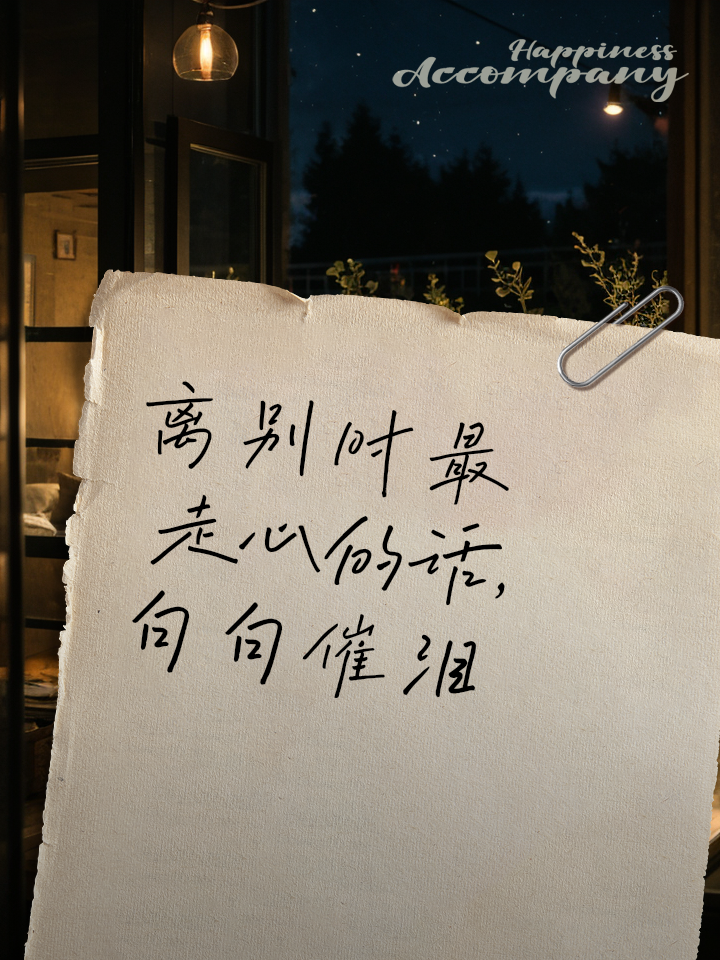 Happiness
Accompany
离别时最
走心的话,
句句催泪